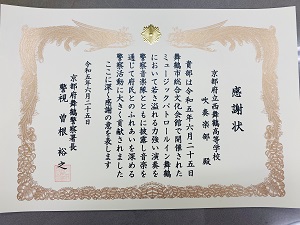 感謝状
京都府立西舞鶴高等学校
吹奏楽部 殿
貴部は令和五年六月二十五日
舞鶴市総合文化会館で開催された
ミュージックパトロールイン舞鶴
において若さ溢れる力強い演奏を
警察音楽隊とともに披露し音楽を
通じて府民とのふれあいを深める
警察活動に大きく貢献されました
ここに深く感謝の意を表します
令和五年六月二十五日
京都府舞鶴警察署長
警視 曽根 裕之